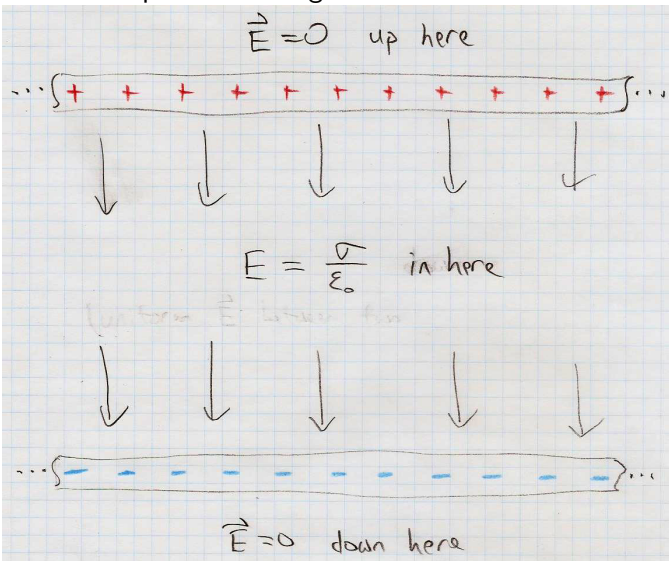 E⃗ = 0 up here
... + + + + + + + + + + + ...
E = σ/ε₀ in here
... - - - - - - - - - - - ...
E⃗ = 0 down here